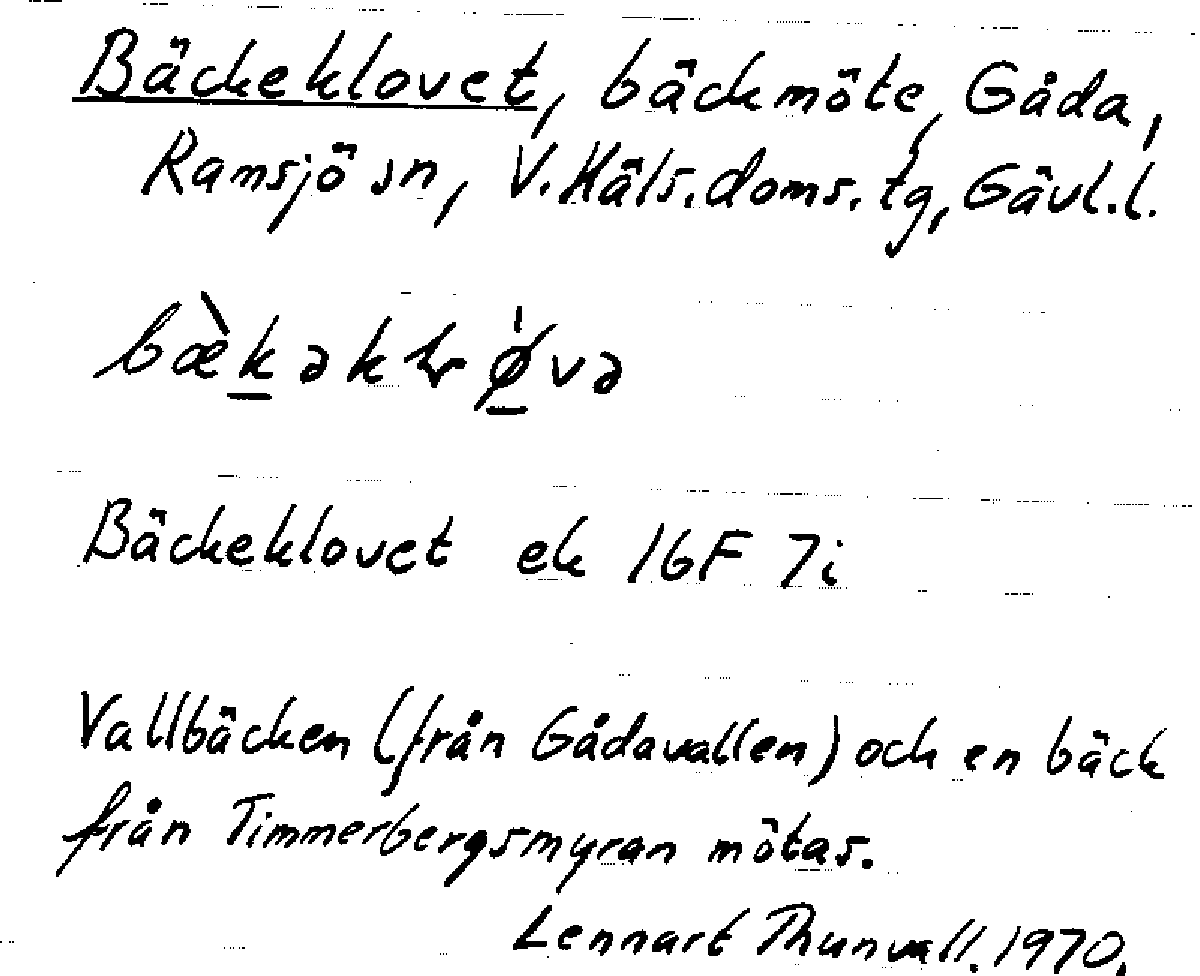 Bäckeklovet, bäckmöte, Gåda,
Ramsjö sn, V. Häls. doms. tg, Gävl. l.
Bäckeklovet ek 16F 7i
Vallbäcken (från Gådavallen) och en bäck
från Timmerbergsmyran mötas.
Lennart Thunvall. 1970.